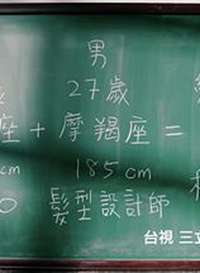 男
27歲
座+摩羯座=
cm 185cm
髮型設計師
台視 三立